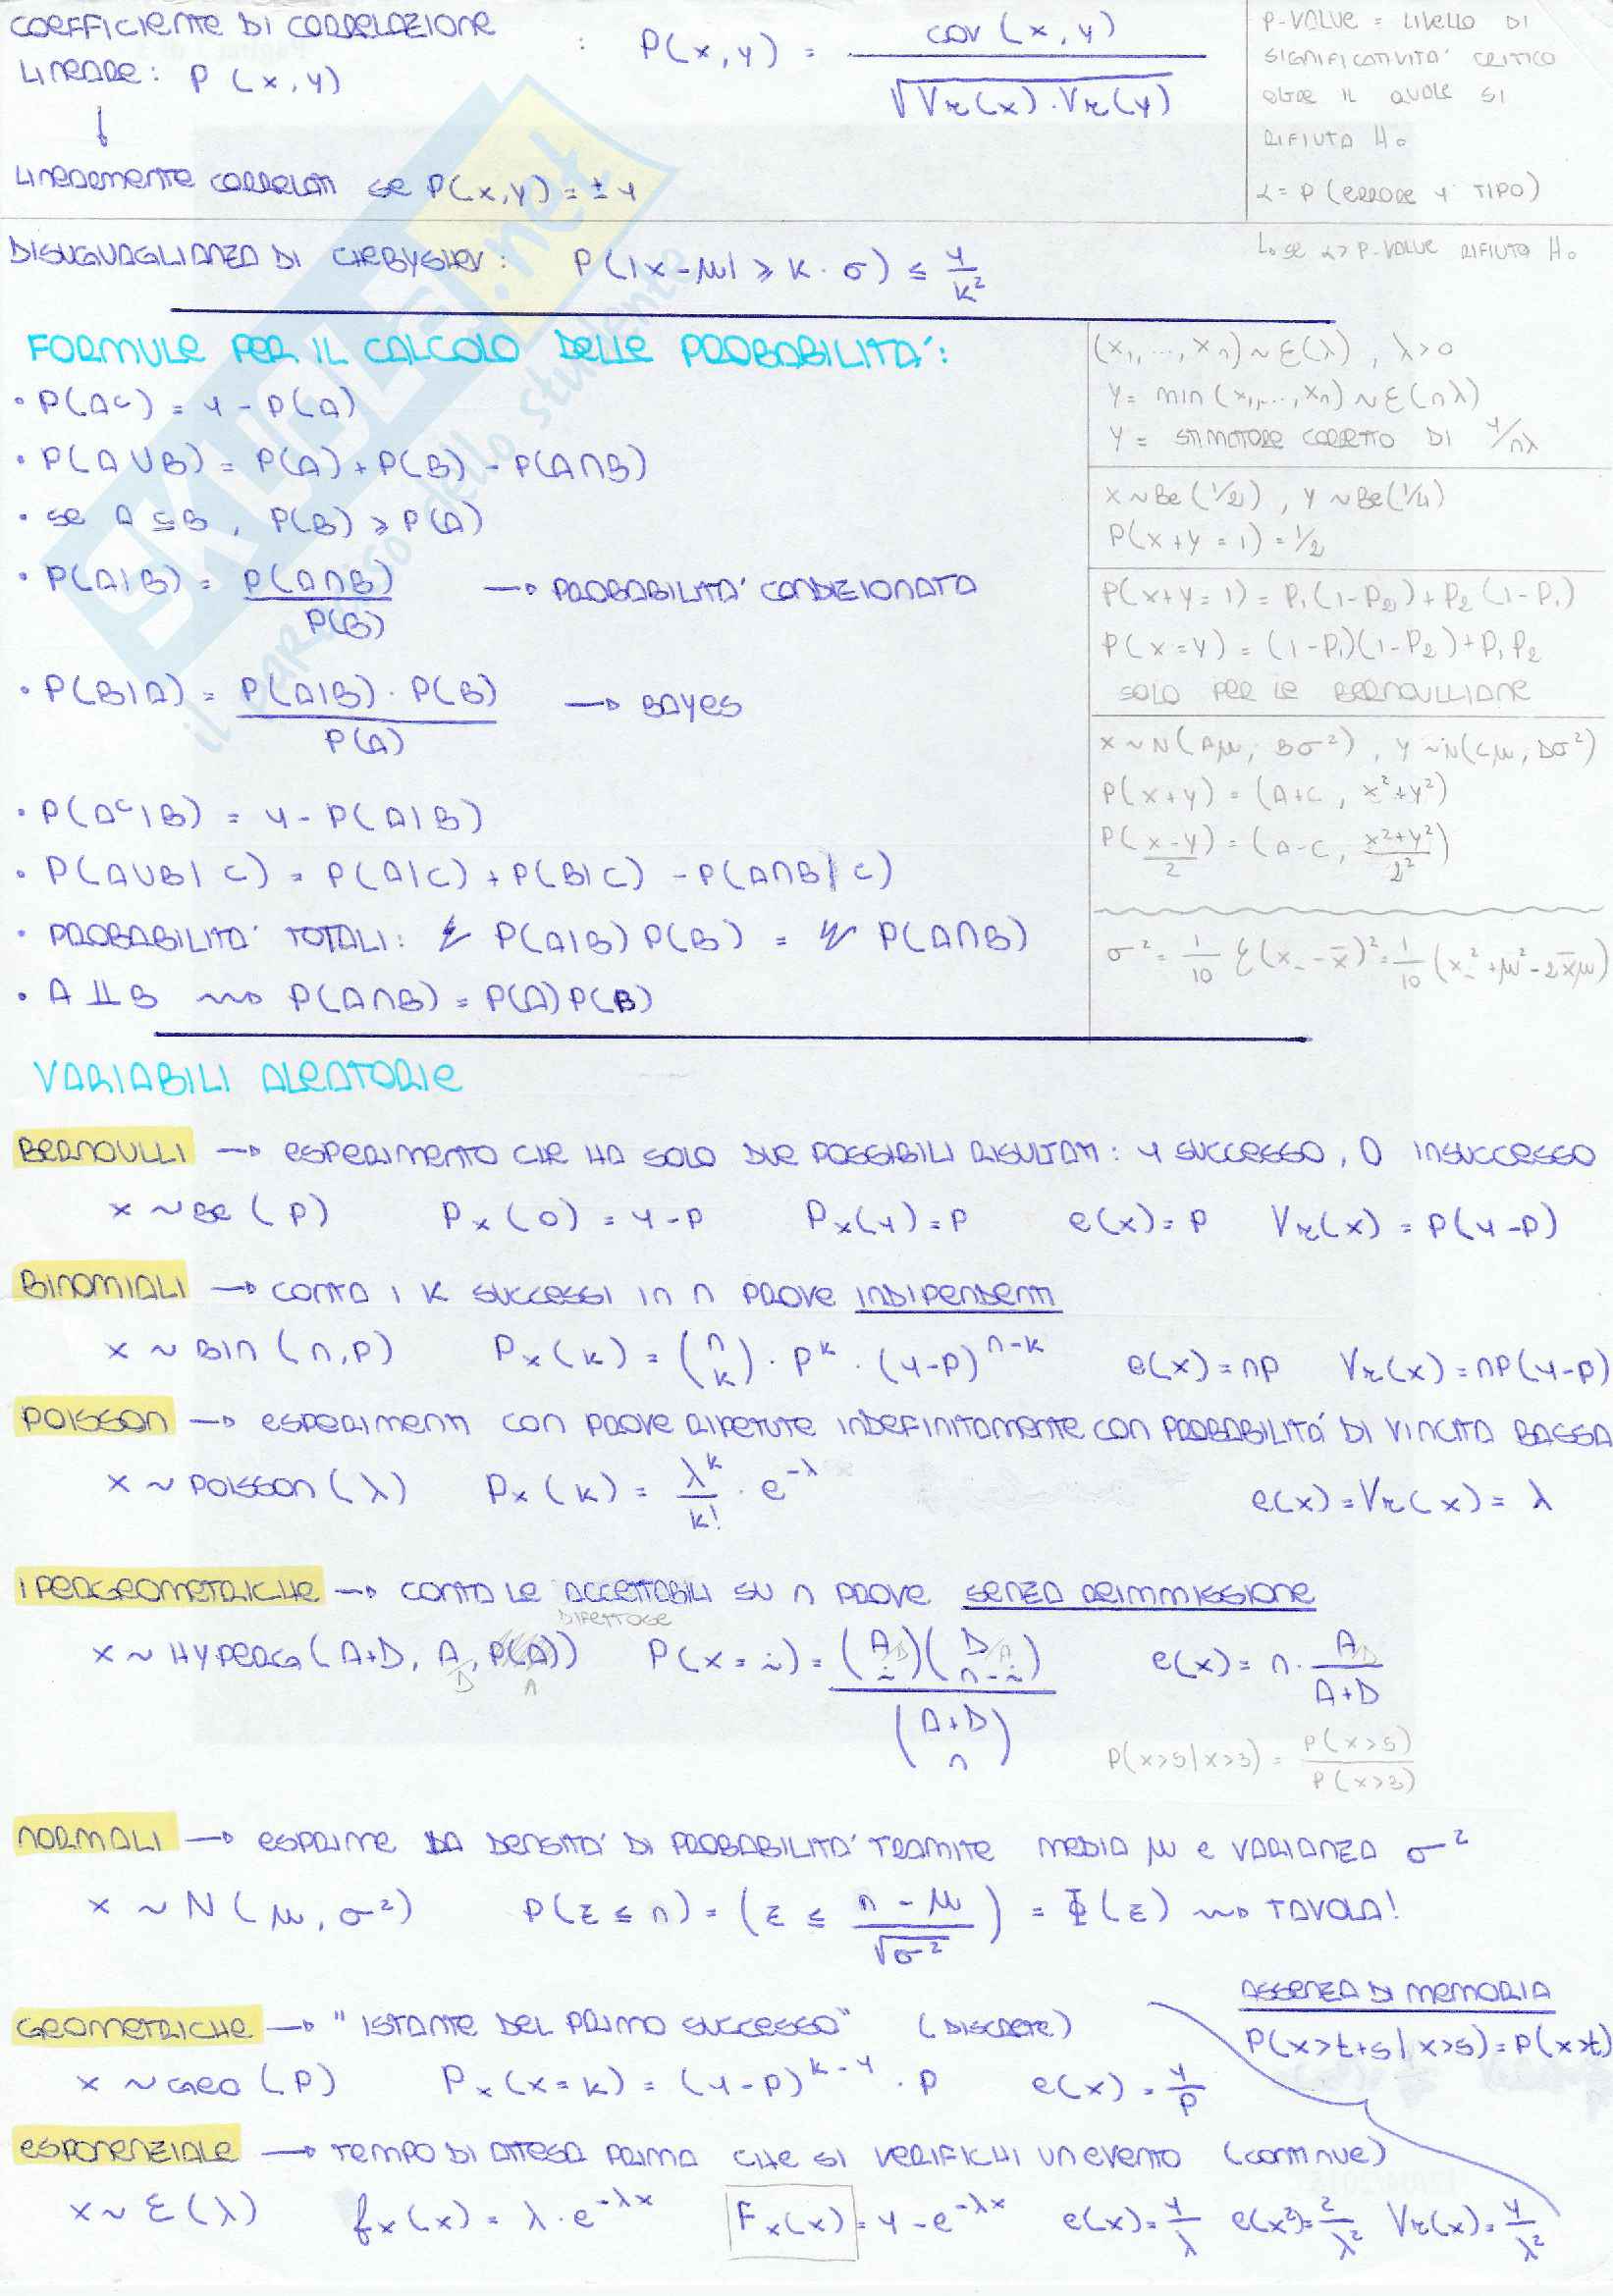 COEFFICIENTE DI CORRELAZIONE
LINEARE: P(x,y) : P(x,y) = cov(x,y) / √(Vr(x)·Vr(y))
↓
LINEARMENTE CORRELATI se P(x,y) = ±1
P-VALUE = LIVELLO DI
SIGNIFICATIVITA' CRITICO
OLTRE IL QUALE SI
RIFIUTA H₀
α = P(ERRORE 1° TIPO)
↳ se α > P-VALUE RIFIUTO H₀
DISUGUAGLIANZA DI CHEBYSHEV: P(|x-μ| ≥ k·σ) ≤ 1/k²
FORMULE PER IL CALCOLO DELLE PROBABILITA':
• P(Aᶜ) = 1 - P(A)
• P(A∪B) = P(A) + P(B) - P(A∩B)
• se A ⊆ B, P(B) ≥ P(A)
• P(A|B) = P(A∩B) / P(B) → PROBABILITA' CONDIZIONATA
• P(B|A) = P(A|B)·P(B) / P(A) → BAYES
• P(Aᶜ|B) = 1 - P(A|B)
• P(A∪B|C) = P(A|C) + P(B|C) - P(A∩B|C)
• PROBABILITA' TOTALI: Σ P(A|B)P(B) = Σ P(A∩B)
• A ⫫ B ⇝ P(A∩B) = P(A)P(B)
(x₁,...,xn) ~ Ɛ(λ), λ>0
Y = min(x₁,...,xn) ~ Ɛ(nλ)
Y = STIMATORE CORRETTO DI 1/nλ
x ~ Be(1/2), Y ~ Be(1/4)
P(x+y = 1) = 1/2
P(x+y = 1) = P₁(1-P₂) + P₂(1-P₁)
P(x=y) = (1-P₁)(1-P₂) + P₁P₂
SOLO PER LE BERNOULLIANE
x ~ N(Aμ; Bσ²), Y ~ N(Cμ; Dσ²)
P(x+y) = (A+C, x²+y²)
P((x-y)/2) = (A-C, (x²+y²)/2²)
σ² = 1/10 Σ(x_ - x̄)² = 1/10 (x_² + μ² - 2x̄μ)
VARIABILI ALEATORIE
BERNOULLI → ESPERIMENTO CHE HA SOLO DUE POSSIBILI RISULTATI: 1 SUCCESSO, 0 INSUCCESSO
x ~ Be(P) Px(0) = 1-P Px(1) = P e(x) = P Vr(x) = P(1-P)
BINOMIALI → CONTA I K SUCCESSI IN n PROVE INDIPENDENTI
x ~ Bin(n,P) Px(k) = (n k)·Pᵏ·(1-P)ⁿ⁻ᵏ e(x) = nP Vr(x) = nP(1-P)
POISSON → ESPERIMENTI CON PROVE RIPETUTE INDEFINITAMENTE CON PROBABILITA' DI VINCITA BASSA
x ~ POISSON(λ) Px(k) = λᵏ/k! · e^-λ e(x) = Vr(x) = λ
IPERGEOMETRICHE → CONTA LE ACCETTABILI SU n PROVE SENZA REIMMISSIONE
DIFETTOSE
x ~ HYPERG(A+D, A, P(A)) P(x=i) = (A i)(D n-i) / (A+D n) e(x) = n· A/(A+D)
D A D A D
P(x>5|x>3) = P(x>5) / P(x>3)
NORMALI → ESPRIME LA DENSITA' DI PROBABILITA' TRAMITE MEDIA μ E VARIANZA σ²
x ~ N(μ, σ²) P(Z ≤ n) = (Z ≤ (n-μ)/√σ²) = Φ(Z) ⇝ TAVOLA!
GEOMETRICHE → "ISTANTE DEL PRIMO SUCCESSO" (DISCRETE)
x ~ Geo(P) Px(x=k) = (1-P)ᵏ⁻¹·P e(x) = 1/P
ASSENZA DI MEMORIA
P(x>t+s|x>s) = P(x>t)
ESPONENZIALE → TEMPO DI ATTESA PRIMA CHE SI VERIFICHI UN EVENTO (CONTINUE)
x ~ Ɛ(λ) fx(x) = λ·e^-λx Fx(x) = 1-e^-λx e(x) = 1/λ e(x²) = 2/λ² Vr(x) = 1/λ²
SKUOLA.net
il paradiso dello studente